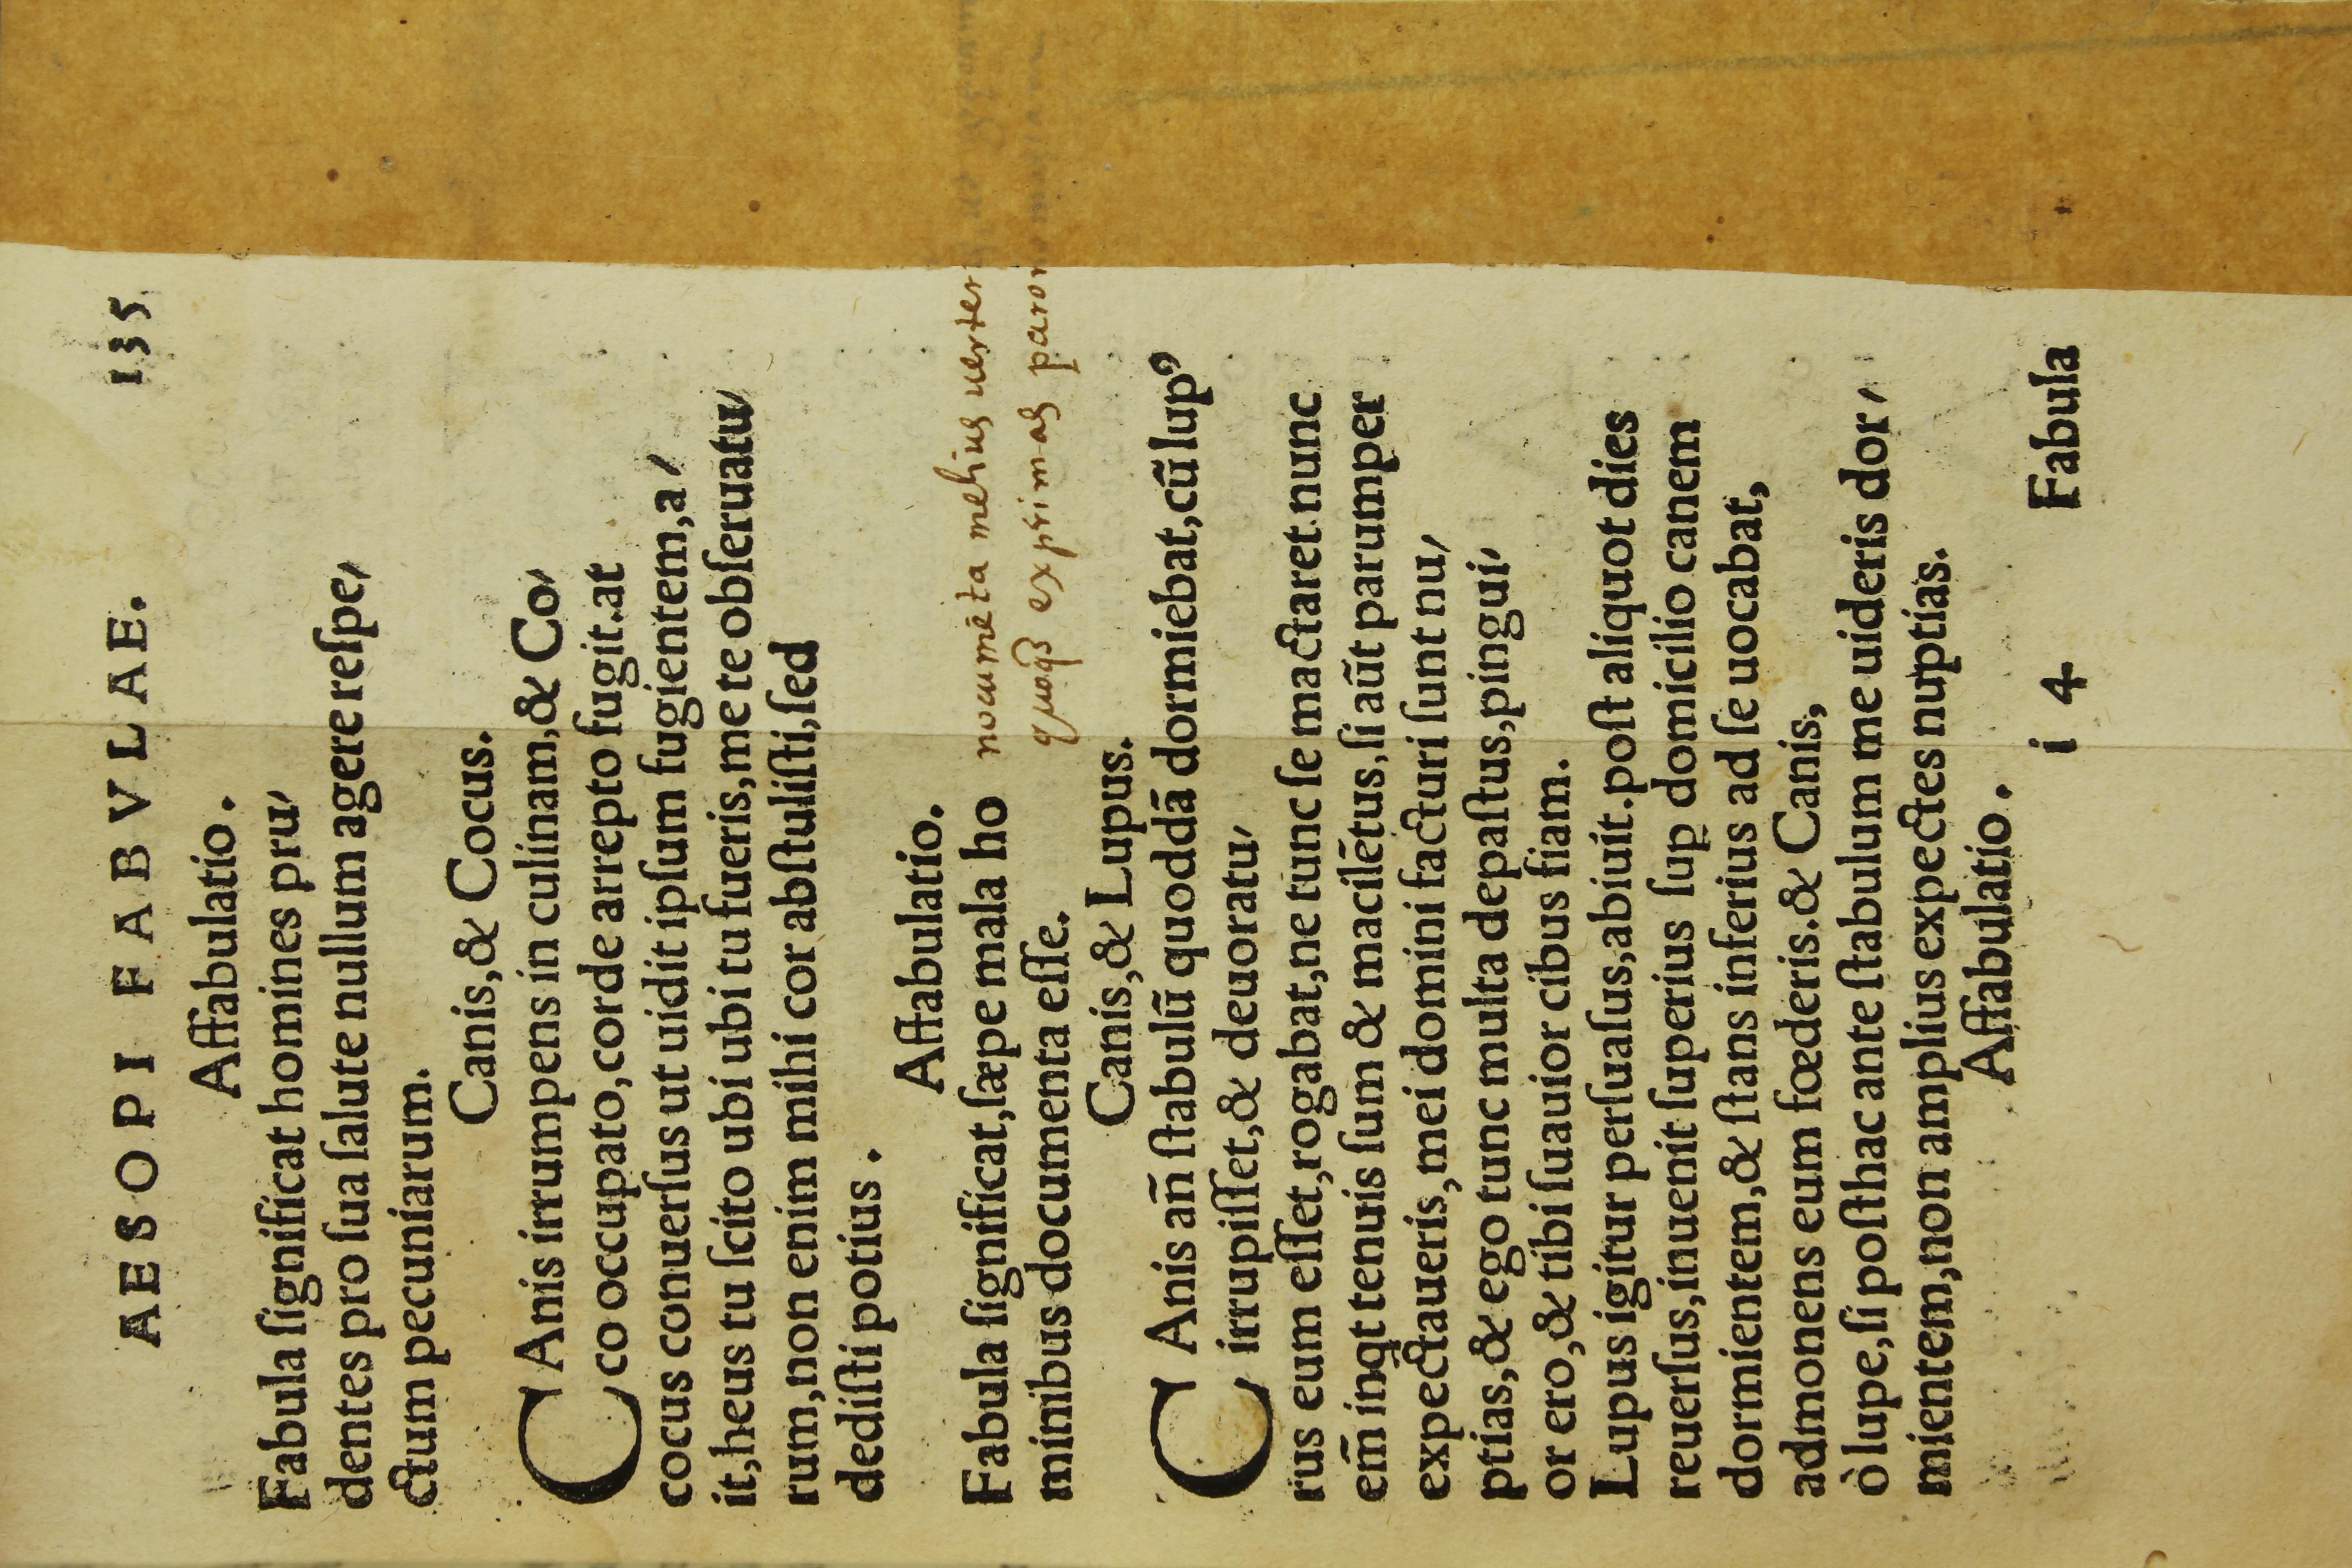 AESOPI FABVLAE. 135
Affabulatio.
Fabula ſignificat homines pru⸗
dentes pro ſua ſalute nullum agere reſpe⸗
ctum pecuniarum.
Canis, & Cocus.
CAnis irrumpens in culinam, & Co⸗
co occupato, corde arrepto fugit. at
cocus conuerſus ut uidit ipſum fugientem, a⸗
it, heus tu ſcito ubi ubi tu fueris, me te obſeruatu⸗
rum, non enim mihi cor abſtuliſti, ſed
dediſti potius.
Affabulatio.
Fabula ſignificat, ſæpe mala ho
minibus documenta eſſe.
nocumēta melius
quoqȝ exprimas
Canis, & Lupus.
CAnis añ ſtabulū quoddā dormiebat, cū lupꝰ
irrupiſſet, & deuoratu⸗
rus eum eſſet, rogabat, ne tunc ſe mactaret. nunc
em̄ inqt tenuis ſum & macilētus, ſi aūt parumper
expectaueris, mei domini facturi ſunt nu⸗
ptias, & ego tunc multa depaſtus, pingui⸗
or ero, & tibi ſuauior cibus fiam.
Lupus igitur perſuaſus, abiuit. poſt aliquot dies
reuerſus, inuenit ſuperius ſuꝑ domicilio canem
dormientem, & ſtans inferius ad ſe uocabat,
admonens eum fœderis. & Canis,
ò lupe, ſi poſthac ante ſtabulum me uideris dor⸗
mientem, non amplius expectes nuptias.
Affabulatio.
i 4 Fabula